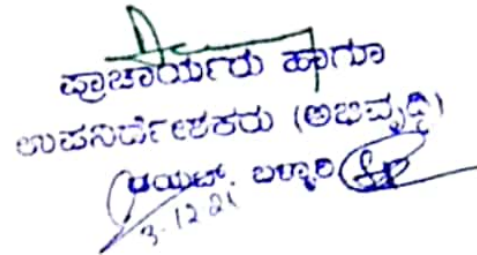 ಪ್ರಾಚಾರ್ಯರು ಹಾಗೂ
ಉಪನಿರ್ದೇಶಕರು (ಅಭಿವೃದ್ಧಿ)
ಡಯಟ್, ಬಳ್ಳಾರಿ
3.12.21